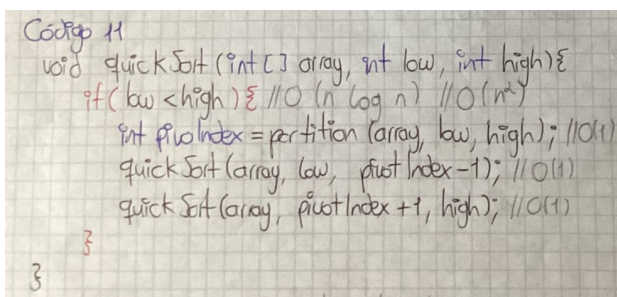 Código 11
void quickSort (int [] array, int low, int high){
if( low < high) { //O (n log n) //O(n²)
int pivoIndex = partition (array, low, high); //O(1)
quickSort (array, low, pivotIndex-1); //O(1)
quickSort (array, pivotIndex+1, high); //O(1)
}
}